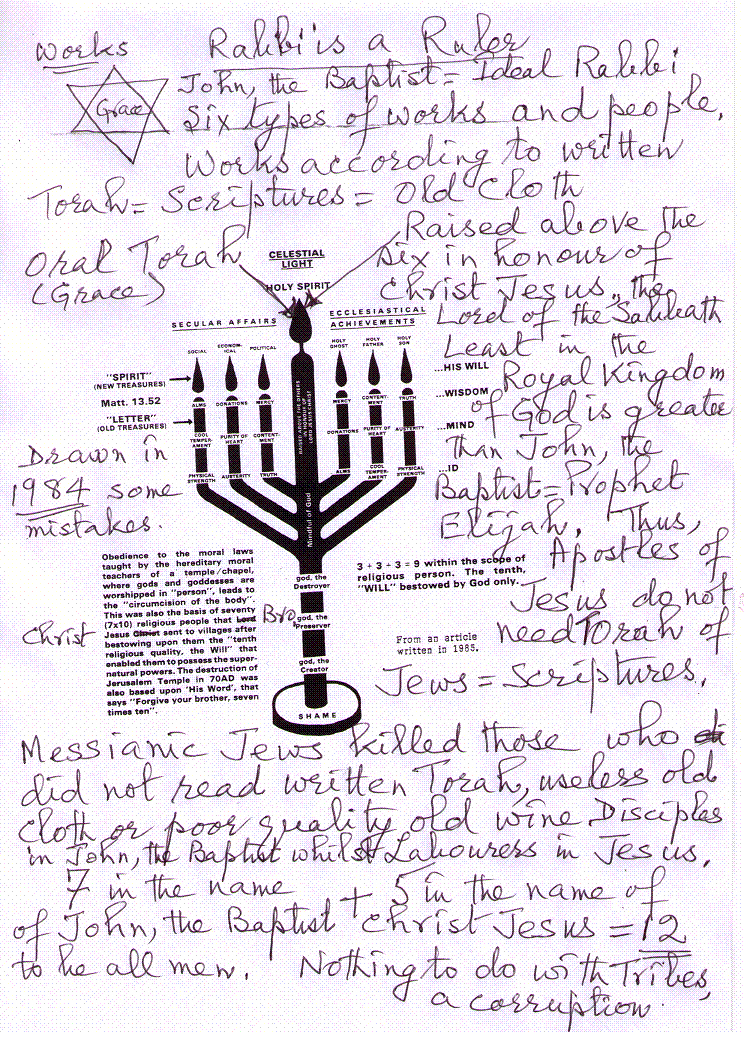 Works Rabbi is a Ruler
Grace
John, the Baptist = Ideal Rabbi
Six types of works and people,
Works according to written
Torah = Scriptures = Old Cloth
Oral Torah
(Grace)
Raised above the
six in honour of
Christ Jesus, the
Lord of the Sabbath
Least in the
Royal Kingdom
of God is greater
than John, the
Baptist = Prophet
Elijah. Thus,
Apostles of
Jesus do not
need Torah of
Jews = Scriptures.
CELESTIAL
LIGHT
HOLY SPIRIT
SECULAR AFFAIRS
ECCLESIASTICAL
ACHIEVEMENTS
SOCIAL
ECONOM-
ICAL
POLITICAL
HOLY
GHOST
HOLY
FATHER
HOLY
SON
"SPIRIT"
(NEW TREASURES)
Matt. 13.52
"LETTER"
(OLD TREASURES)
ALMS
DONATIONS
MERCY
MERCY
CONTENT-
MENT
TRUTH
COOL
TEMPER-
AMENT
PURITY OF
HEART
CONTENT-
MENT
DONATIONS
PURITY OF
HEART
AUSTERITY
PHYSICAL
STRENGTH
AUSTERITY
TRUTH
ALMS
COOL
TEMPER-
AMENT
PHYSICAL
STRENGTH
...HIS WILL
...WISDOM
...MIND
...ID
RAISED ABOVE THE OTHERS
IN HONOUR OF
LORD JESUS CHRIST
Mindful of God
god, the
Destroyer
god, the
Preserver
god, the
Creator
SHAME
Drawn in
1984 some
mistakes.
Obedience to the moral laws
taught by the hereditary moral
teachers of a temple/chapel,
where gods and goddesses are
worshipped in "person", leads to
the "circumcision of the body".
This was also the basis of seventy
(7x10) religious people that Lord Bro.
Christ Jesus Christ sent to villages after
bestowing upon them the "tenth
religious quality, the Will" that
enabled them to possess the super-
natural powers. The destruction of
Jerusalem Temple in 70AD was
also based upon 'His Word', that
says "Forgive your brother, seven
times ten".
3 + 3 + 3 = 9 within the scope of
religious person. The tenth,
"WILL" bestowed by God only.
From an article
written in 1985.
Messianic Jews killed those who di
did not read written Torah, useless old
cloth or poor quality old wine Disciples
in John, the Baptist whilst Labourers in Jesus.
7 in the name + 5 in the name of
of John, the Baptist Christ Jesus = 12
to be all men. Nothing to do with Tribes,
a corruption.